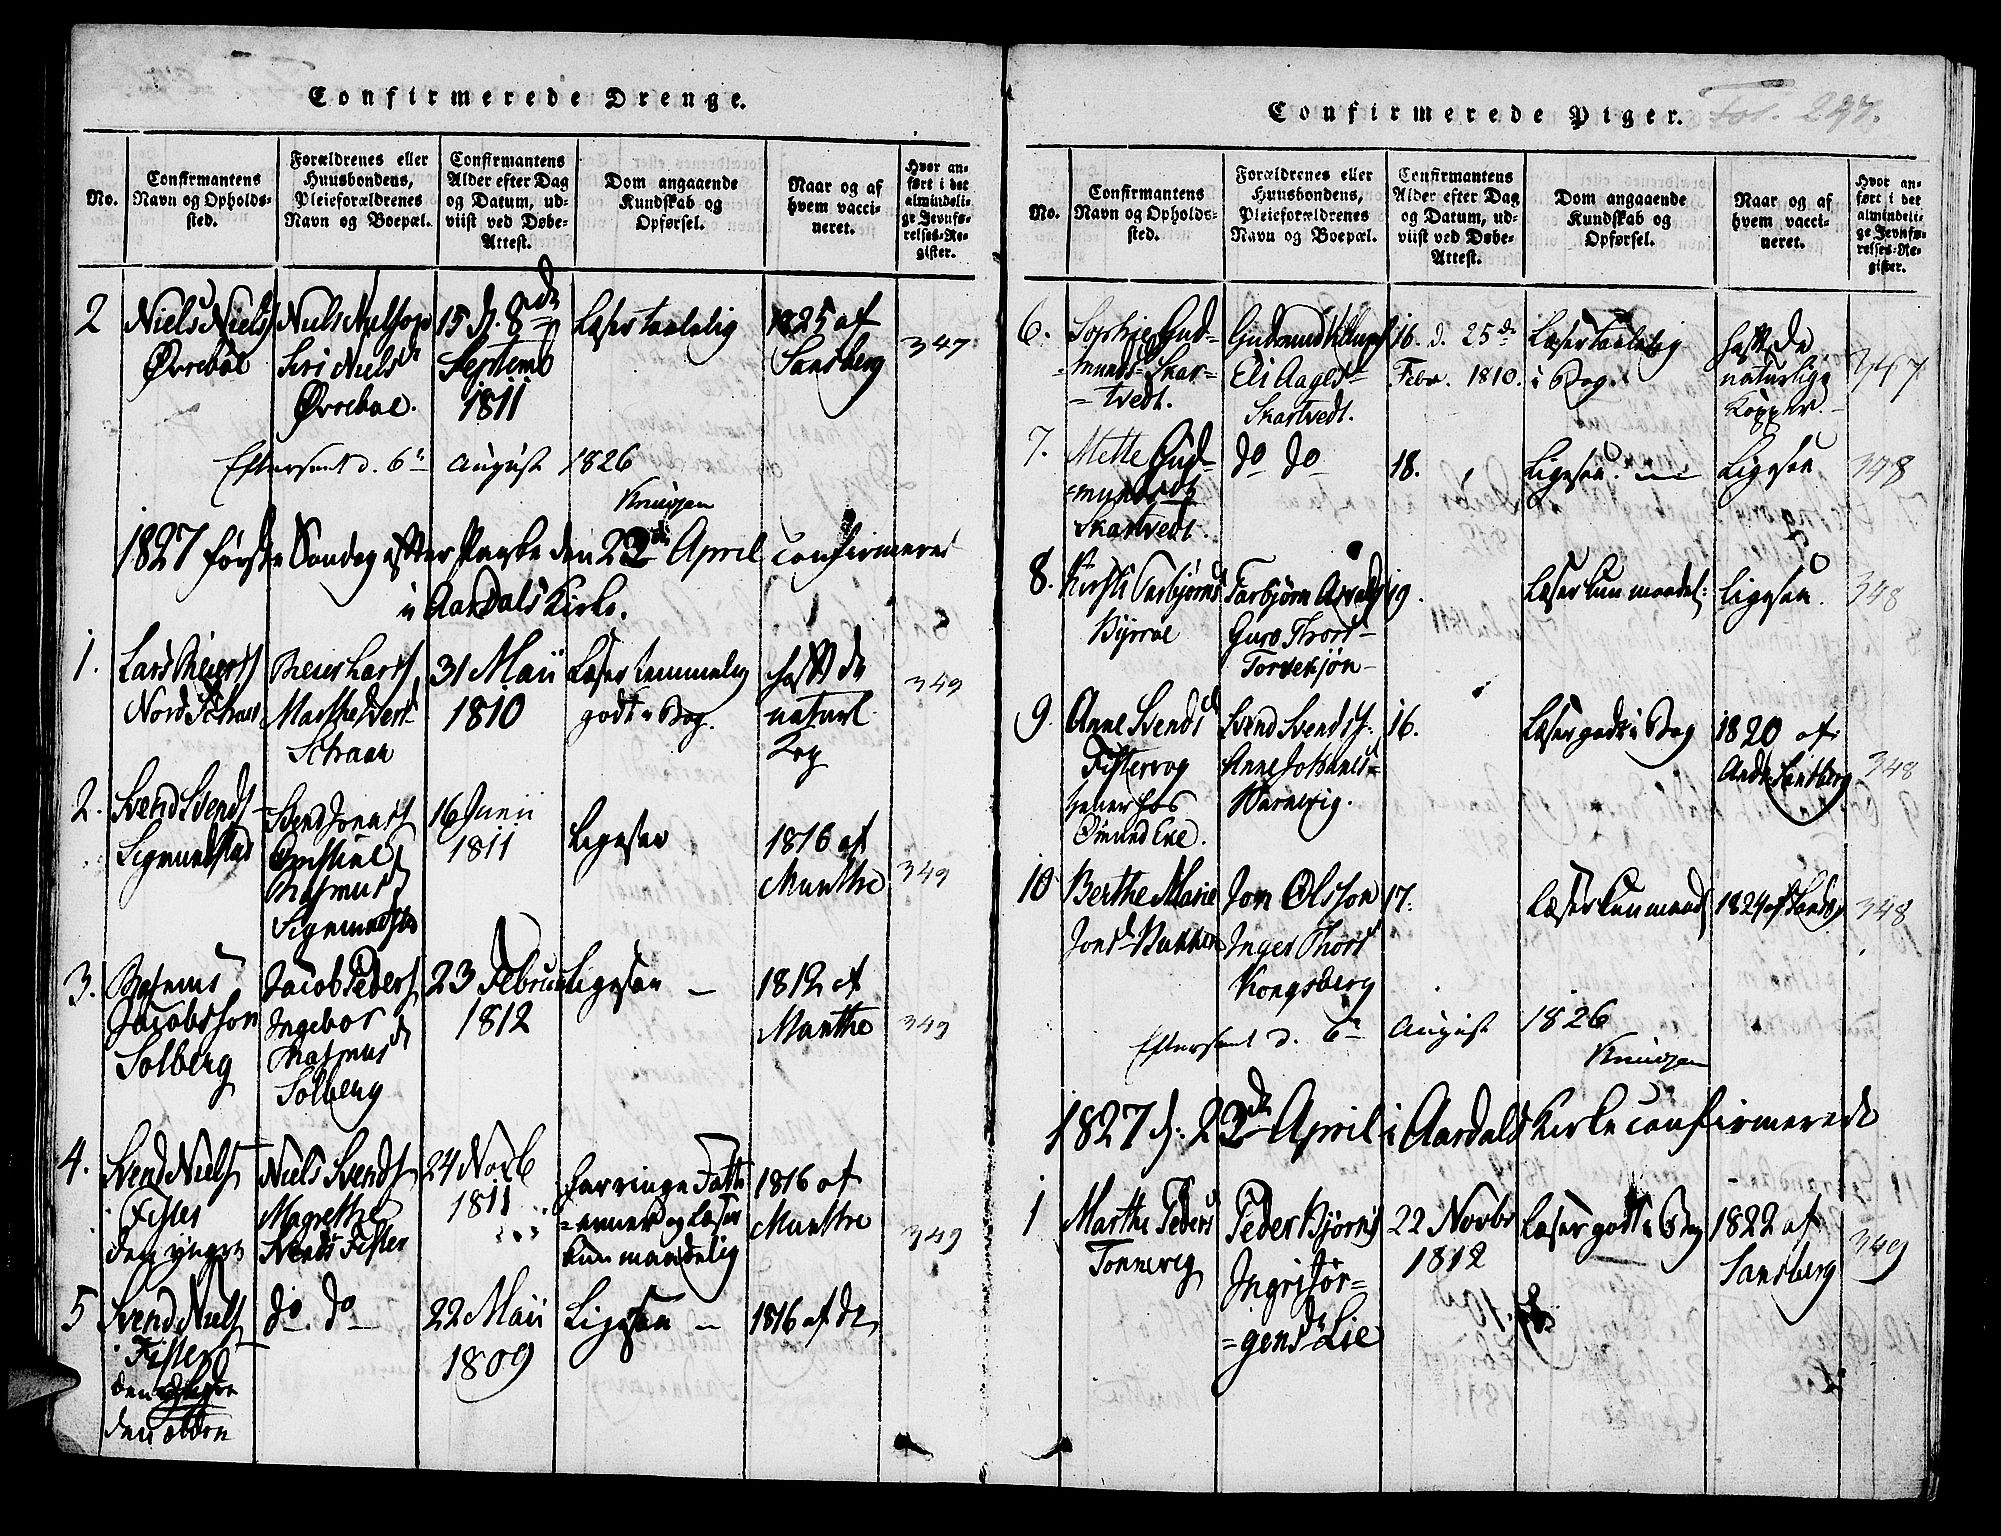 Confirmerede Drenge.
No.
Confirmantens
Navn og Opholds-
sted.
Forældrenes eller
Huusbondens,
Pleieforældrenes
Navn og Boepæl.
Confirmantens
Alder efter Dag
og Datum, ud-
viist ved Døbe-
Attest.
Dom angaaende
Kundskab og
Opførsel.
Naar og af
hvem vacci-
neret.
Hvor an-
ført i det
almindeli-
ge Jevnfø-
relses-Re-
gister.
2
Niels Niels
Ørrebøe
Niels Nielson
Siri Nielsd
Ørrebøe.
15 d. 8de
Septemb
1811
Læser taalelig
1825 af
Sansberg
347
Efterseet d. 6te August 1826
Knudzen
1827 første Søndag efter Paaske den 22de April confirmeret
i Aardals Kirke.
1.
Lars Meiers
Nord
Meier Lars
Marthe
31 Maii
1810
Læser temmelig
godt i Bog.
haft de
naturl.
Kop
349
2.
Svend Svends
Sigmundstad
Svend Jonas
Rasmusd
16 Junii
1811
Ligesaa
1816 af
Munthe
349
3.
Rasmus
Jacobsson
Solberg
Jacob Peders
Ingebor
Rasmusd
Solberg
23 Februar
1812
Ligesaa -
1812 af
Munthe
349
4.
Svend Niels
Fister
den yngre
Niels Svends
Magrethe
Svends Fister
24 Novb
1811
har ringe Fatte
=evner og læser
kun maadelig
1816 af
Munthe
349
5
Svend Niels
Fister
den ældre
do do
22 Maii
1809
Ligesaa -
1816 af do
Confirmerede Piger.
Fol. 297.
No.
Confirmantens
Navn og Opholds-
sted.
Forældrenes eller
Huusbondens,
Pleieforældrenes
Navn og Boepæl.
Confirmantens
Alder efter Dag
og Datum, ud-
viist ved Døbe-
Attest.
Dom angaaende
Kundskab og
Opførsel.
Naar og af
hvem vacci-
neret.
Hvor an-
ført i det
almindeli-
ge Jevnfø-
relses-Re-
gister.
6.
Gud-
=munds Skar-
=tvedt.
Gudmund
Eli Aagesd
Skartvedt.
16. d. 25de
Febr. 1810.
Læser taalelig
i Bog.
haft de
naturlige
Kopper.
347
7.
Mette Gud-
=mundsd
Skartvedt.
do do
18.
Ligesaa.
Ligesaa
348
8.
Kirsti Torbjørnsd
Torbjørn
Guro Thors
19.
Læser kun maadel:
Ligesaa.
348
9.
Anne Svendsd
Fistervog
tjener hos
Ømund
Svend Svends
Anne Johannes=
16.
Læser godt i Bog
1820 af
348
10
Berthe Marie
Jonsd
Jon Olsson
Inger Thors
Kongsberg
17.
Læser kun maad
1824 af Sansb
348
Efterseet d. 6te August 1826
Knudzen
1827 d. 22de April i Aardals Kirke confirmerede
1
Marthe Pedersd
Tonneveg
Peder Bjørns
Ingri Jør=
=gensd Lie
22 Novbr
1812
Læser godt i Bog
1822 af
Sansberg
349